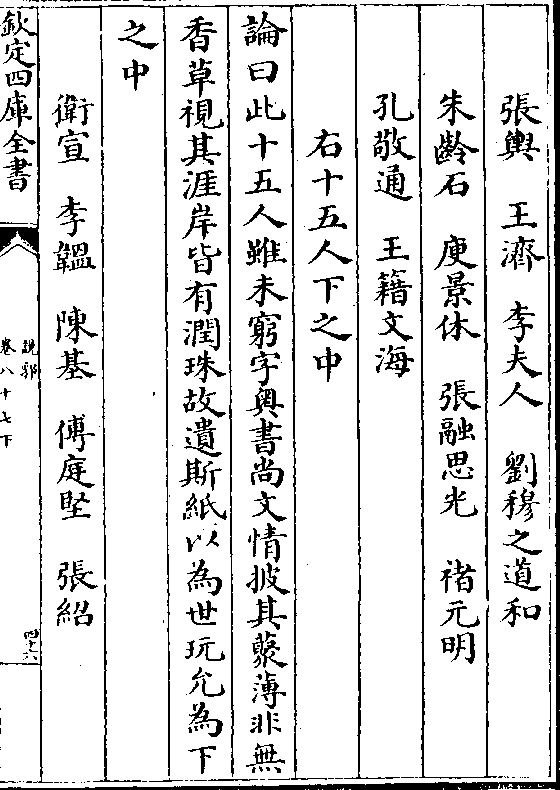 張輿　王濟　李夫人　劉穆之道和
朱齡石　庾景休　張融思光　褚元明
孔敬通　王籍文海
右十五人下之中
論曰此十五人雖未窮字奥書尚文情披其藂薄非無
香草視其涯岸皆有潤珠故遺斯紙以為世玩允為下
之中
衛宣　李韞　陳基　傅庭堅　張紹
欽定四庫全書
說郛
卷八十七下
四十六